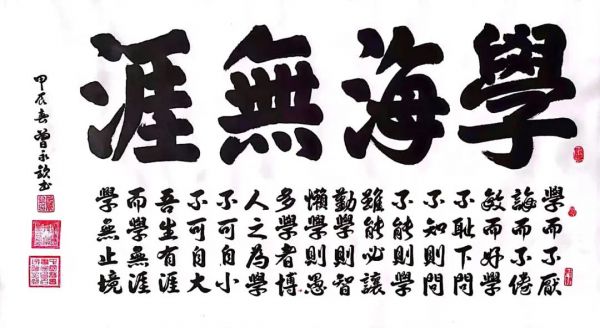 學海無涯
學而不厭
誨而不倦
敏而好學
不耻下問
不知則問
不能則學
雖能必讓
勤學則智
懶學則愚
多學者博
人之為學
不可自小
不可自大
吾生有涯
而學無涯
學無止境
甲辰春曾永书